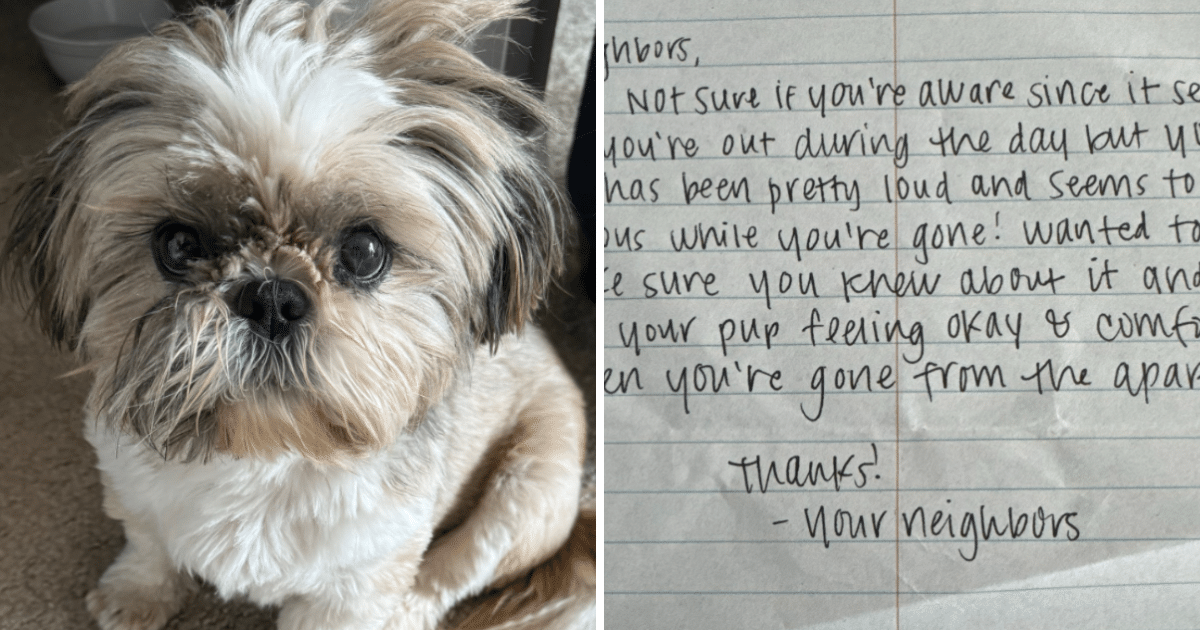 hbors,
Not sure if you're aware since it se
you're out during the day but y
has been pretty loud and seems to
ous while you're gone! wanted to
e sure you knew about it and
your pup feeling okay & comf
en you're gone from the apar
Thanks!
- your neighbors